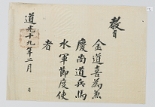 教旨
金道善爲無
慶尚道兵馬
水軍節度使
者
道光十九年二月